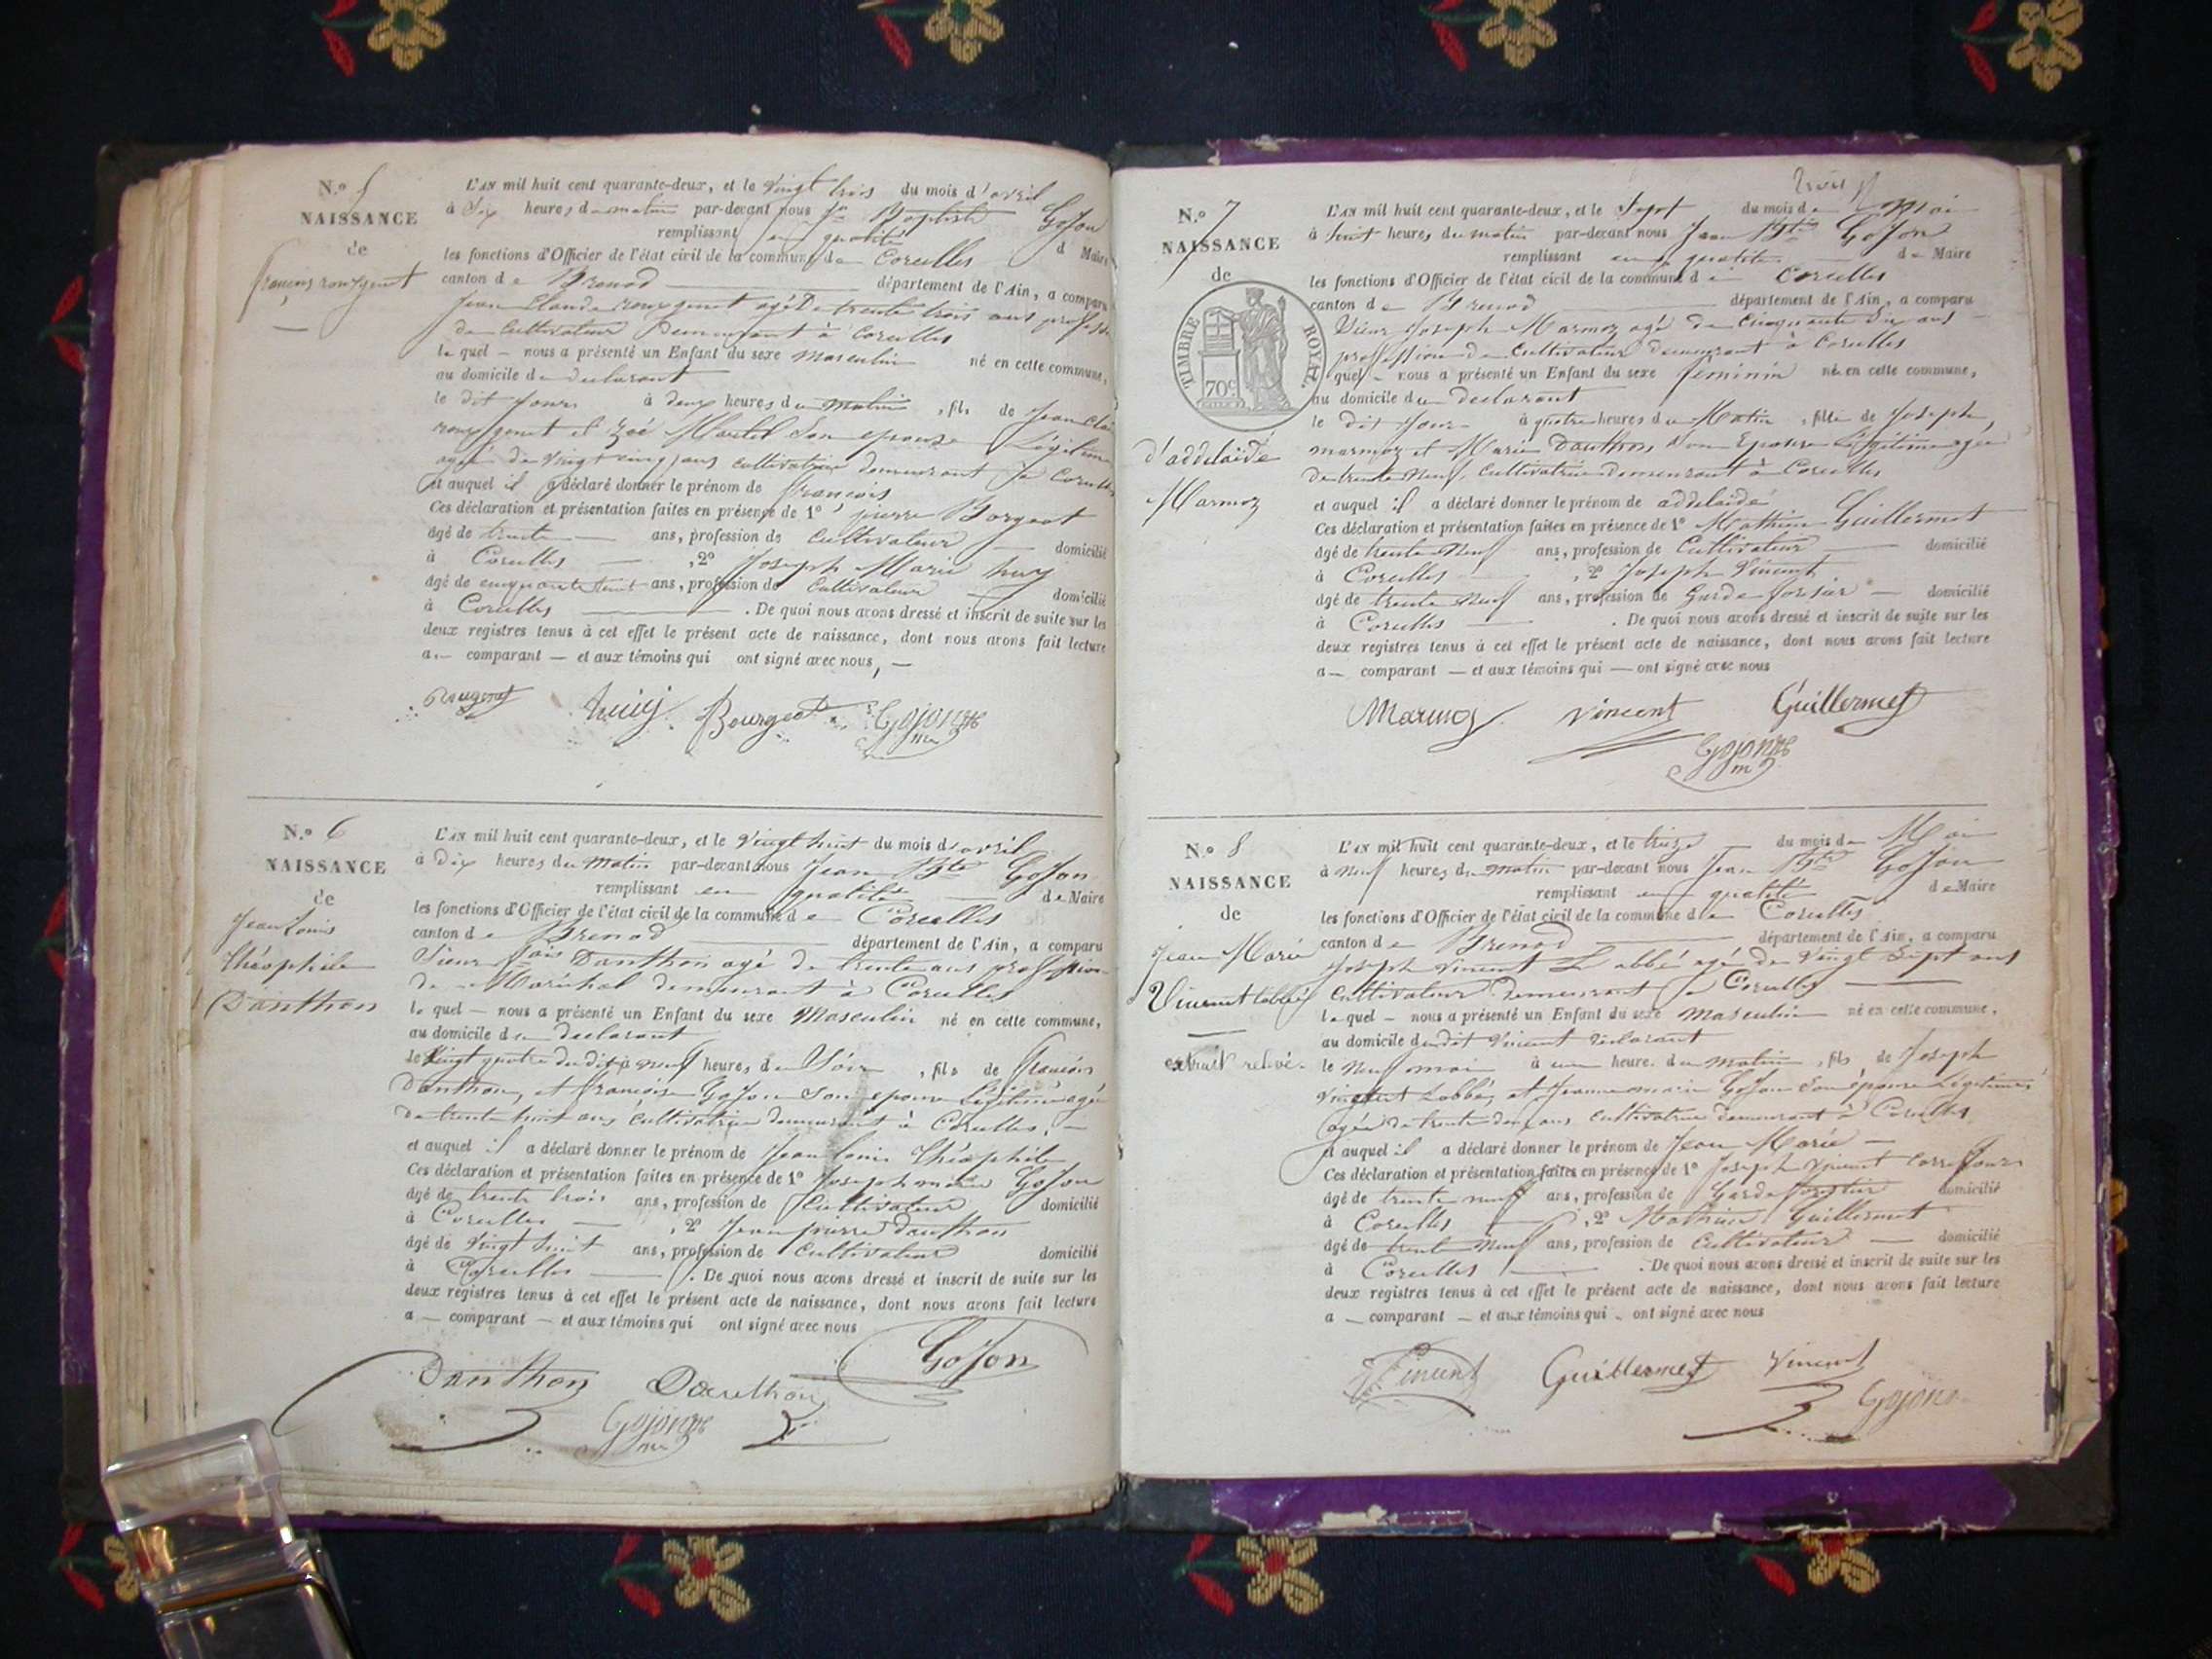 N.° 5
NAISSANCE
de
françois rougemot
L'AN mil huit cent quarante-deux, et le vingt trois du mois d'avril
à Six heures du matin par-devant nous Jn Baptiste Gojon
remplissant en qualité d Maire
les fonctions d'Officier de l'état civil de la commune de Corcelles
canton de Brenod département de l'Ain, a comparu
Jean Claude agé De trente trois ans profession
de Cultivateur Demeurant à Corcelles
lequel – nous a présenté un Enfant du sexe masculin né en cette commune,
au domicile du declarant
le dit Jour à deux heures du matin, fils de Jean Claude
et Zoé Martel Son epouse Légitime
agée de vingt cinq ans cultivatrice demeurant à Corcelles
et auquel il a déclaré donner le prénom de françois
Ces déclaration et présentation faites en présence de 1° pierre Borgeot
âgé de trente ans, profession de Cultivateur domicilié
à Corcelles , 2° Joseph Marie huy
âgé de cinquante ans, profession de Cultivateur domicilié
à Corcelles . De quoi nous avons dressé et inscrit de suite sur les
deux registres tenus à cet effet le présent acte de naissance, dont nous avons fait lecture
au comparant – et aux témoins qui ont signé avec nous, –
Bourgeot Gojon
N.° 6
NAISSANCE
de
Jean Louis
théophile
Danthon
L'AN mil huit cent quarante-deux, et le vingt huit du mois d'avril
à Dix heures du matin par-devant nous Jean Bte Gojon
remplissant en qualité de Maire
les fonctions d'Officier de l'état civil de la commune de Corcelles
canton de Brenod département de l'Ain, a comparu
Sieur fois Danthon agé de trente ans profession
de Maréchal demeurant à Corcelles
lequel – nous a présenté un Enfant du sexe Masculin né en cette commune,
au domicile du declarant
le Vingt quatre du dit à neuf heures du Soir, fils de françois
Danthon, et françoise Gojon Son epouse Légitime agée
de trente huit ans cultivatrice demeurant à Corcelles, –
et auquel il a déclaré donner le prénom de Jean louis théophile
Ces déclaration et présentation faites en présence de 1° Joseph marie Gojon
âgé de trente trois ans, profession de Cultivateur domicilié
à Corcelles , 2° Jean pierre Danthon
âgé de Vingt huit ans, profession de Cultivateur domicilié
à Corcelles . De quoi nous avons dressé et inscrit de suite sur les
deux registres tenus à cet effet le présent acte de naissance, dont nous avons fait lecture
a – comparant – et aux témoins qui ont signé avec nous
Gojon
Danthon Danthon
Gojon
N.° 7
NAISSANCE
de
TIMBRE ROYAL.
70c
d'addelaïde
Marmoz
L'AN mil huit cent quarante-deux, et le Sept du mois de Mai
à huit heures du matin par-devant nous Jean Bte Gojon
remplissant en qualité de Maire
les fonctions d'Officier de l'état civil de la commune de Corcelles
canton de Brenod département de l'Ain, a comparu
Sieur Joseph Marmoz agé de Cinquante Six ans
proffession de Cultivateur demeurant à Corcelles
quel – nous a présenté un Enfant du sexe féminin né en cette commune,
au domicile du declarant
le dit Jour à quatre heures du Matin, fille de Joseph
marmoz et Marie Danthon Son Epouse Légitime agée
de trente neuf, cultivatrice demeurant à Corcelles
et auquel il a déclaré donner le prénom de addelaïde
Ces déclaration et présentation faites en présence de 1° Mathieu Guillermet
âgé de trente neuf ans, profession de Cultivateur domicilié
à Corcelles , 2° Joseph Vincent
âgé de trente neuf ans, profession de Garde forestier – domicilié
à Corcelles . De quoi nous avons dressé et inscrit de suite sur les
deux registres tenus à cet effet le présent acte de naissance, dont nous avons fait lecture
a – comparant – et aux témoins qui – ont signé avec nous
Marmoz Vincent Guillermet
Gojon
N.° 8
NAISSANCE
de
Jean Marie
Vincent labbé
extrait relevé.
L'AN mil huit cent quarante-deux, et le treize du mois de Mai
à neuf heures du matin par-devant nous Jean Bte Gojon
remplissant en qualité de Maire
les fonctions d'Officier de l'état civil de la commune de Corcelles
canton de Brenod département de l'Ain, a comparu
Joseph Vincent Labbé agé de Vingt Sept ans
Cultivateur Demeurant à Corcelles
lequel – nous a présenté un Enfant du sexe masculin né en cette commune,
au domicile du dit Vincent déclarant
le Neuf mai à une heure du matin, fils de Joseph
Vincent Labbé, et Jeanne marie Gojon Son épouse Légitime
agée de trente deux ans cultivatrice demeurant à Corcelles
et auquel il a déclaré donner le prénom de Jean Marie –
Ces déclaration et présentation faites en présence de 1° Joseph Vincent
âgé de trente neuf ans, profession de Garde forestier domicilié
à Corcelles , 2° Mathieu Guillermet
âgé de trente neuf ans, profession de Cultivateur – domicilié
à Corcelles . De quoi nous avons dressé et inscrit de suite sur les
deux registres tenus à cet effet le présent acte de naissance, dont nous avons fait lecture
a – comparant – et aux témoins qui – ont signé avec nous
Vincent Guillermet Vincent
Gojon